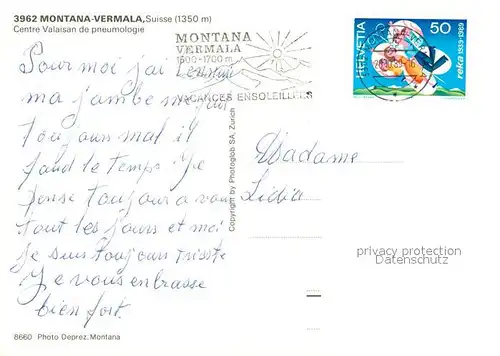 3962 MONTANA-VERMALA, Suisse (1350 m)
Centre Valaisan de pneumologie
MONTANA
VERMALA
1500-1700 m
VACANCES ENSOLEILLÉES
HELVETIA
50
reka 1939-1989
Pour moi j'ai
ma jambe me fait
toujours mal il
faud le temps Je
pense toujour a vou
tout les jours et moi
je suis toujour triste
Je vous embrasse
bien fort.
Copyright by Photoglob SA, Zurich
Madame
Lidia
privacy protection
Datenschutz
8660 Photo Deprez, Montana